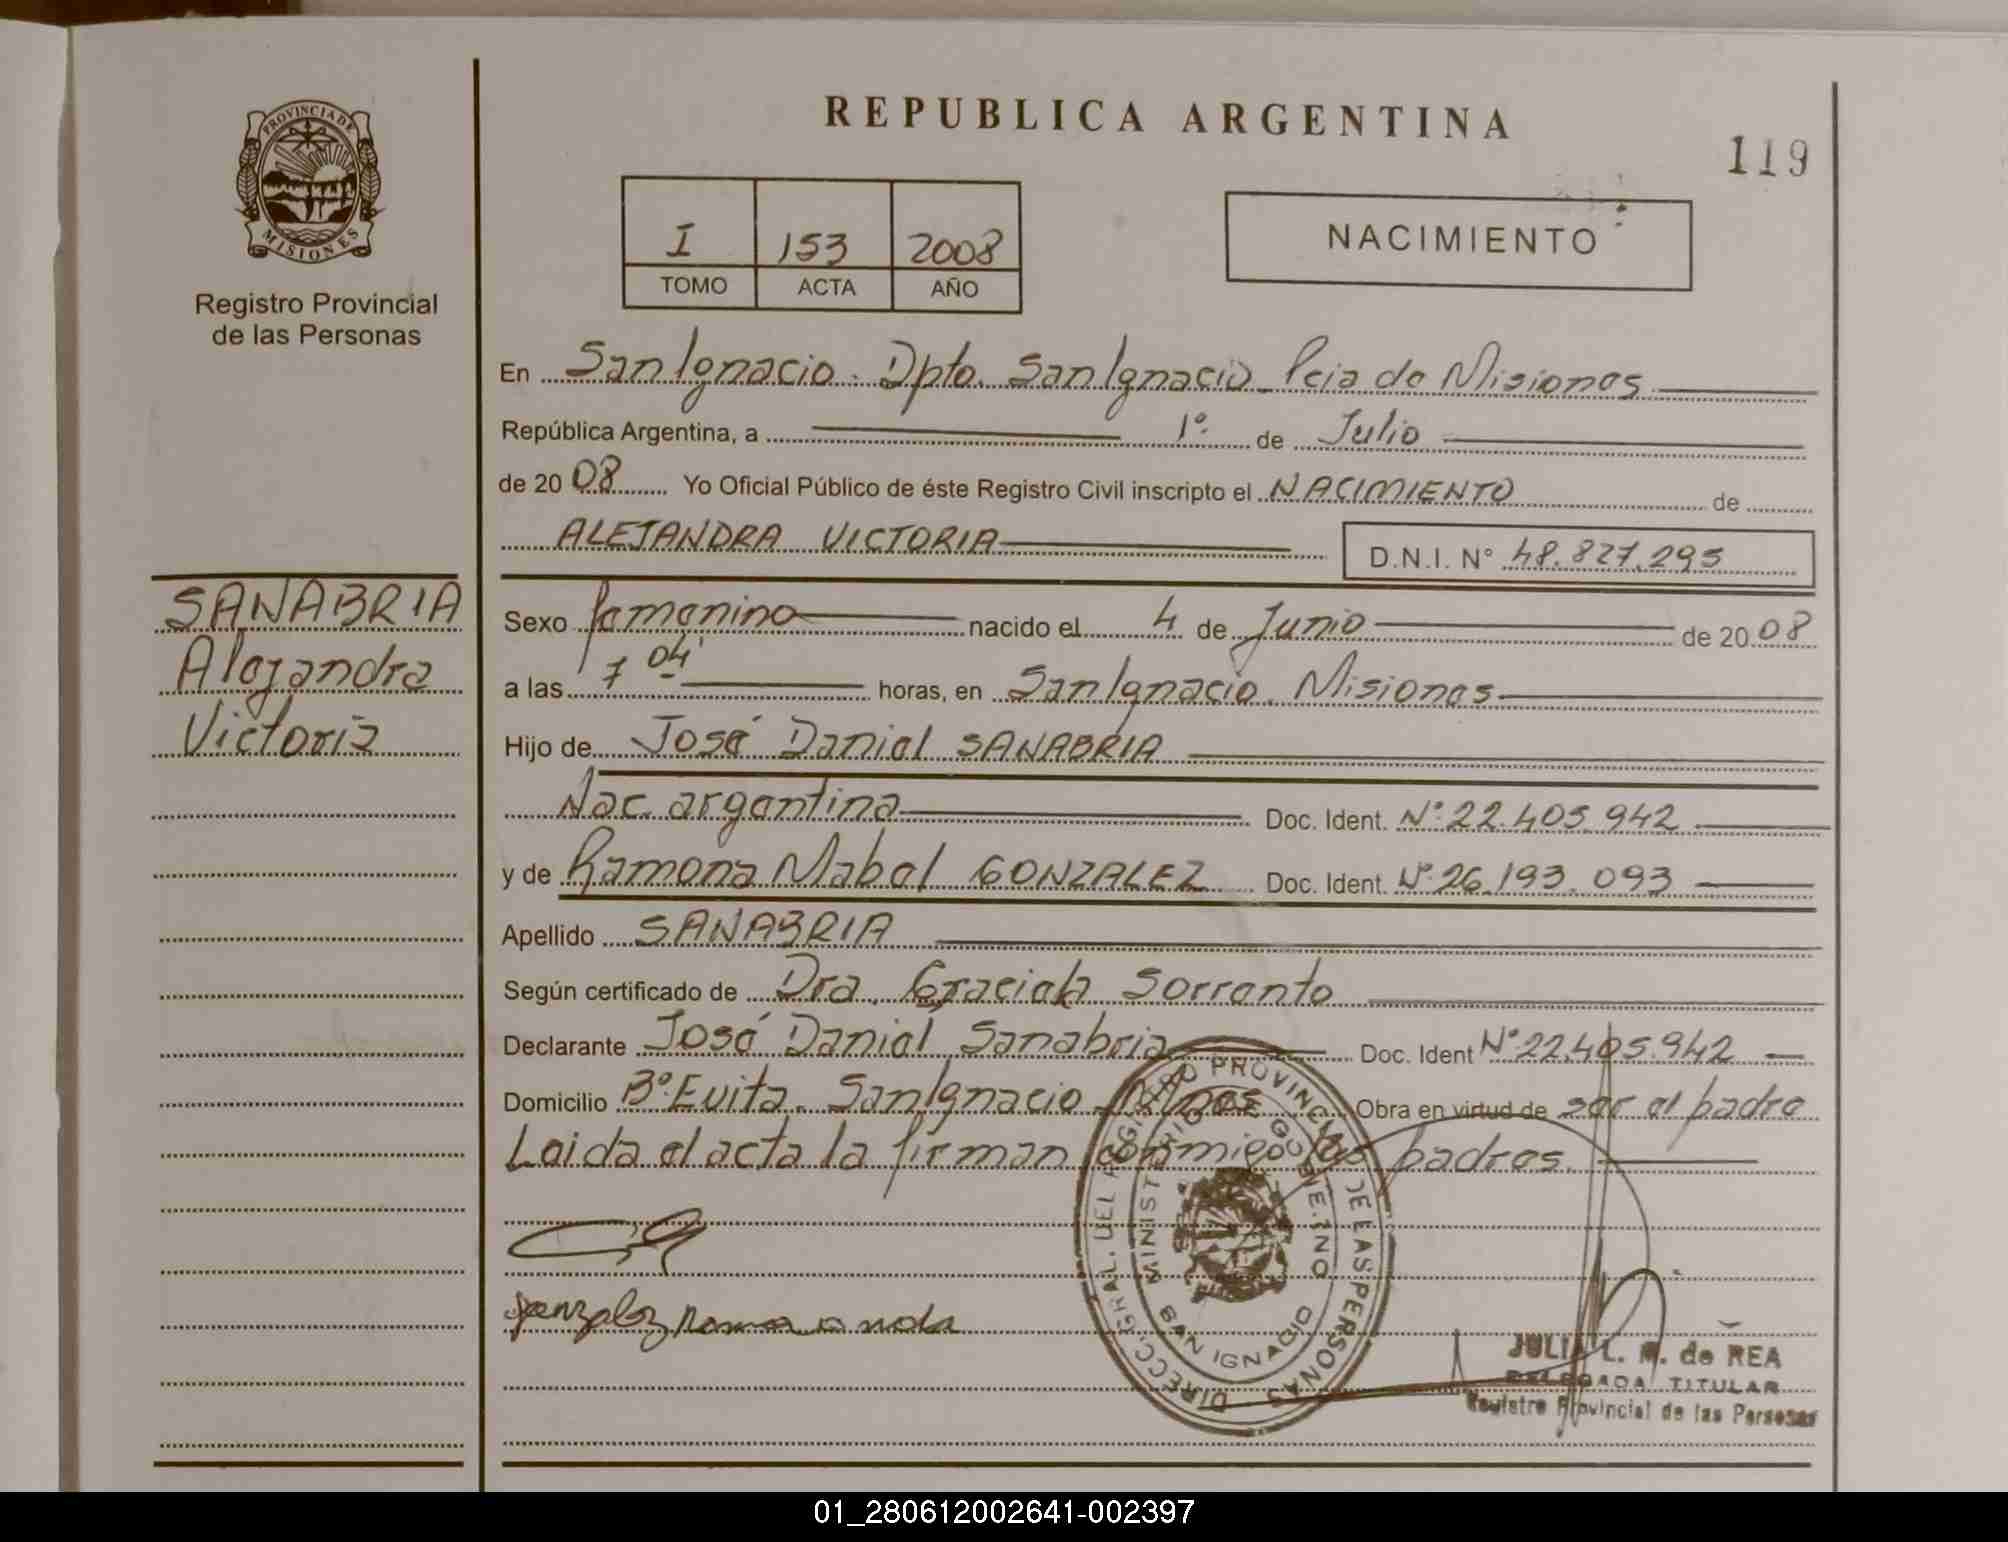 PROVINCIA DE
MISIONES
Registro Provincial
de las Personas
REPUBLICA ARGENTINA
119
I 153 2008
TOMO ACTA AÑO
NACIMIENTO
En San Ignacio. Dpto. San Ignacio Pcia de Misiones
República Argentina, a 1º de Julio
de 2008 Yo Oficial Público de éste Registro Civil inscripto el NACIMIENTO de
ALEJANDRA VICTORIA D.N.I. N° 48.827.295
SANABRIA
Alejandra
Victoria
Sexo femenino nacido el 4 de Junio de 2008
a las 7 04' horas, en San Ignacio. Misiones
Hijo de José Daniel SANABRIA
Nac. argentina Doc. Ident. Nº 22.405.942
y de Ramona Mabel GONZALEZ Doc. Ident. Nº 26.193.093
Apellido SANABRIA
Según certificado de Dra. Graciela Sorrento
Declarante José Daniel Sanabria Doc. Ident Nº 22.405.942
Domicilio Bº Evita. San Ignacio Mnes Obra en virtud de ser el padre
Leida el acta la firman conmigo los padres.
DIRECC. GRAL. DEL REGISTRO PROVINCIAL DE LAS PERSONAS
MINISTERIO GOBIERNO
SAN IGNACIO
gonzalez
JULIA L. M. de REA
DELEGADA TITULAR
Registro Provincial de las Personas
01_280612002641-002397